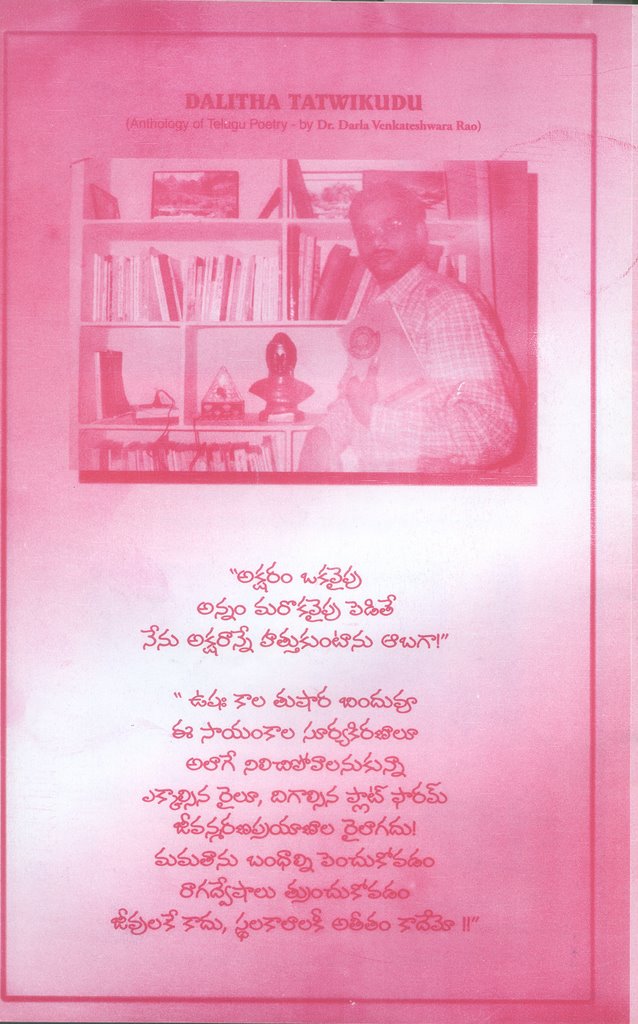 DALITHA TATWIKUDU
(Anthology of Telugu Poetry - by Dr. Darla Venkateshwara Rao)
"అక్షరం ఒకవైపు
అన్నం మరొకవైపు పెడితే
నేను అక్షరాన్నే హత్తుకుంటాను ఆబగా!"
" ఉషః కాల తుషార బిందువూ
ఈ సాయంకాల సూర్యకిరణాలూ
అలాగే నిలిచిపోవాలనుకున్నా
ఎక్కాల్సిన రైలూ, దిగాల్సిన ప్లాట్ ఫారమ్
జీవన్మరణప్రయాణాల రైలాగదు!
మమతాను బంధాల్ని పెంచుకోవడం
రాగద్వేషాలు త్రుంచుకోవడం
జీవులకే కాదు, స్థలకాలాలకీ అతీతం కాదేమో !!"